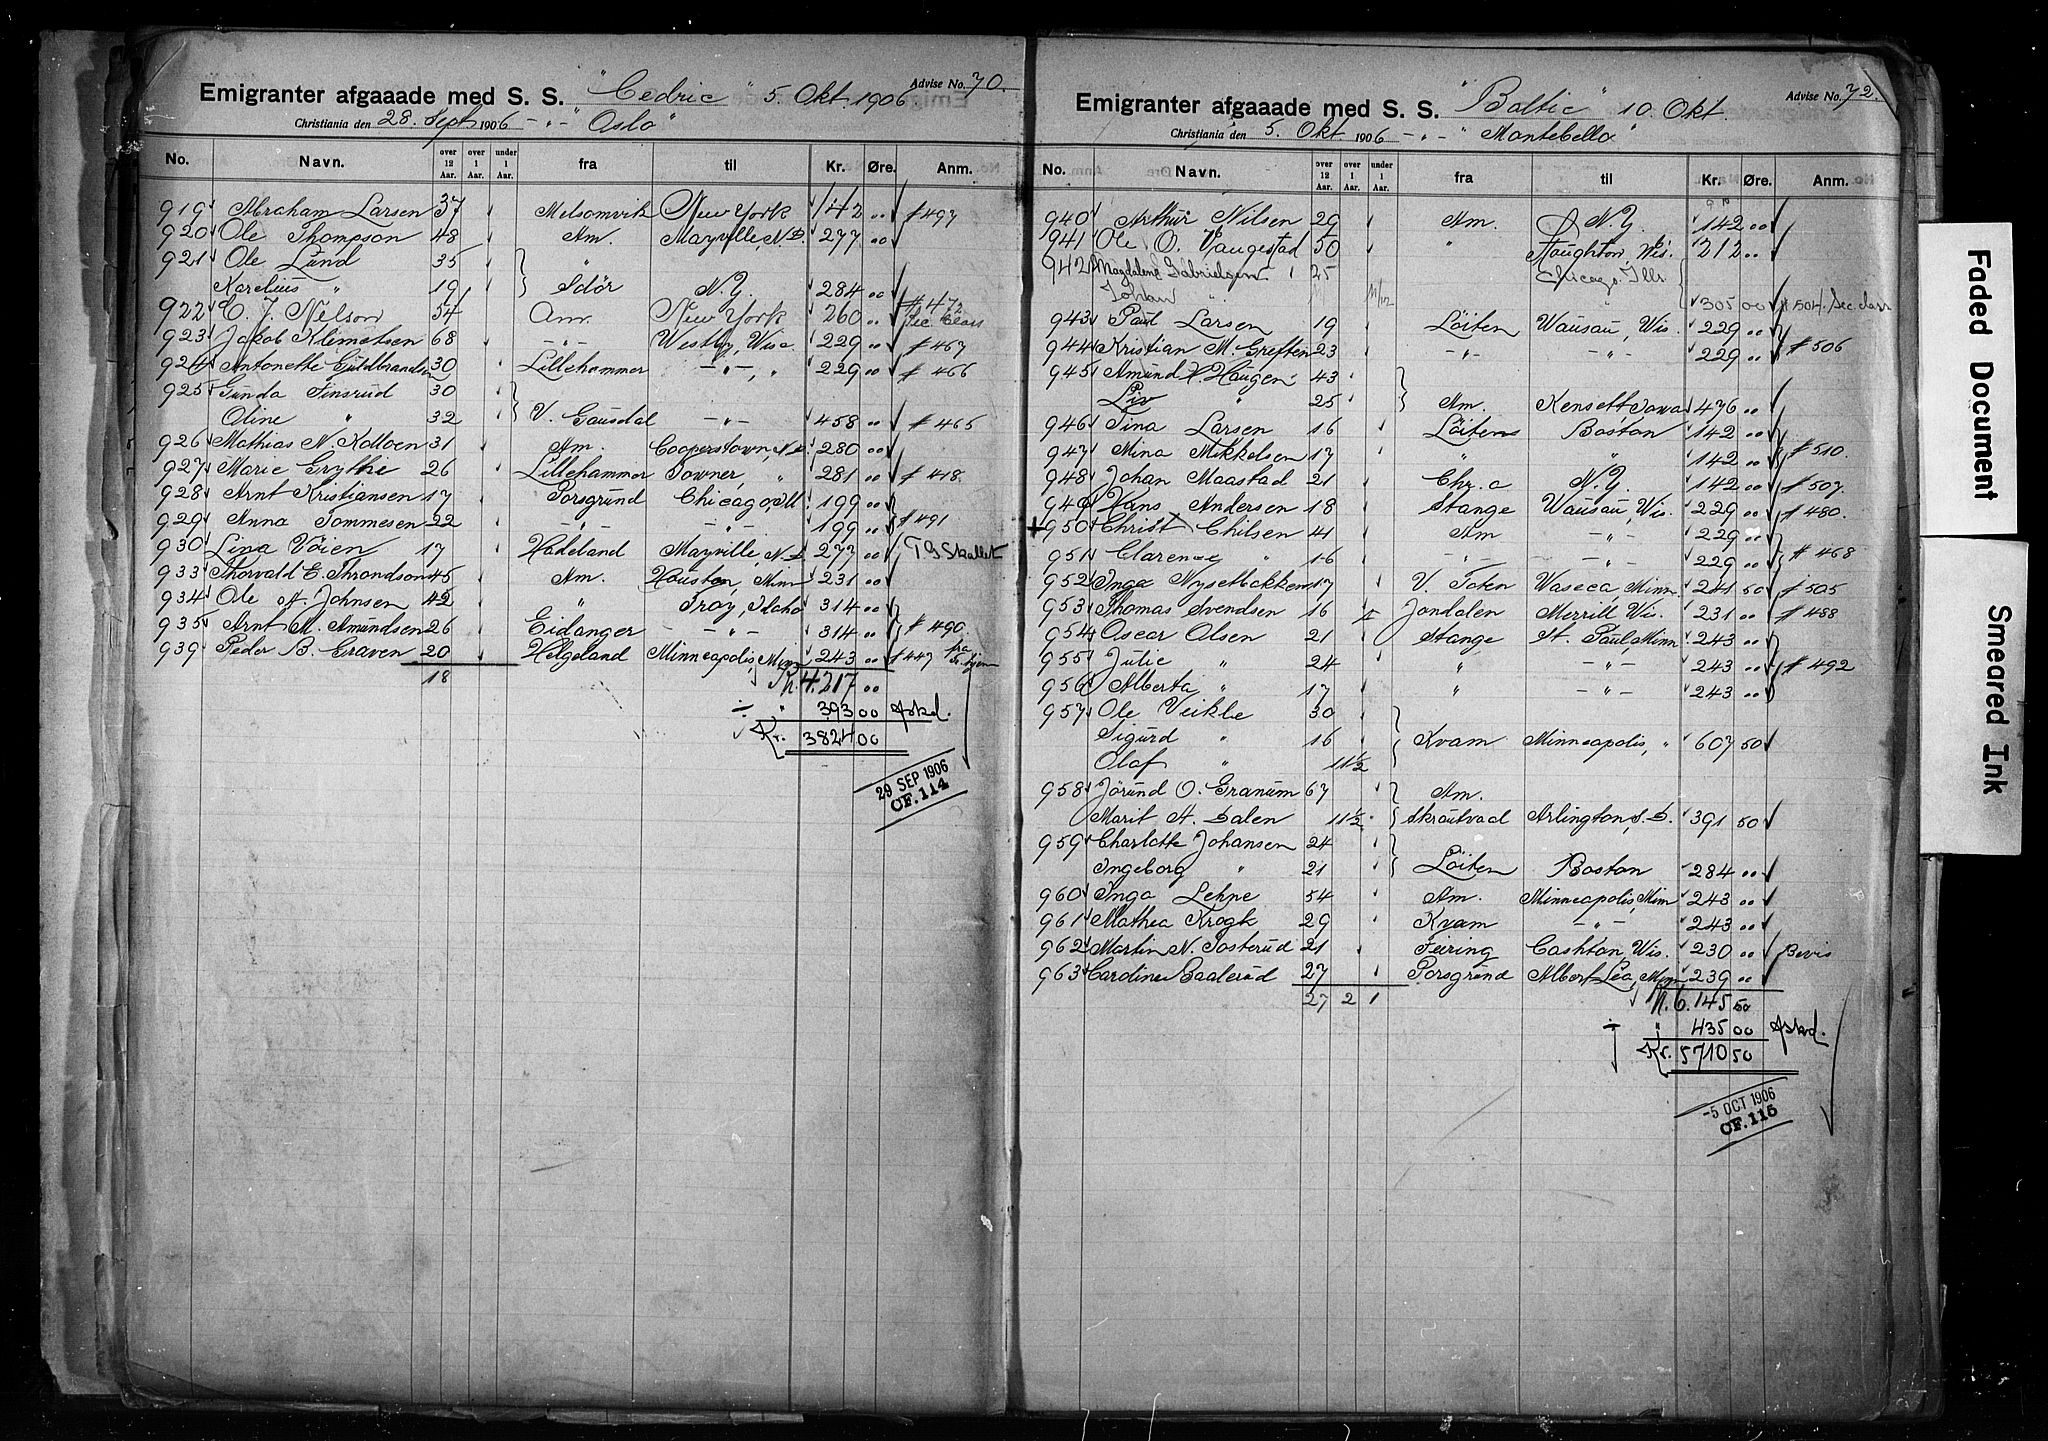 Emigranter afgaaade med S. S. "Cedric" 5 Okt. 1906 Advise No. 70.
Christiania den 28. Sept. 1906 - " - "Oslo"
No. Navn. over 12 Aar. over 1 Aar. under 1 Aar. fra til Kr. Øre. Anm.
919 Abraham Larsen 37 Melsomvik New York 142 "
# 497
920 Ole Thompson 48 Am. Mayville, N.D. 277 "
921 Ole Lund 35 "
Karelius " 19 Idör N.Y. 284 00
922 C. J. Nelson 54 Am. New York 260 " # 472 Sec Class
923 Jakob Klemetsen 68 - " - Westby, Wisc. 229 " # 467
924 Antonette Guldbrandsen 30 Lillehammer - " - , " 229 00 # 466
925 Gunda Finsrud 30
Oline " 32 V. Gausdal - " - 458 00 # 465
926 Mathias N. Kolloen 31 Am. Cooperstown, N.D. 280 00
927 Marie Grythe 26 Lillehammer Towner, " 281 00 # 418.
928 Arnt Kristiansen 17 Porsgrund Chicago, Ill. 199 "
929 Anna Tommesen 22 - " - - " - 199 00 # 491
930 Lina Vöien 17 Hadeland Mayville, N.D. 277 00 T G Skallet
933 Thorvald E. Throndson 45 Am. Houston, Min 231 "
934 Ole A. Johnsen 42 " Troy, Idaho 314 00
935 Arnt M. Amundsen 26 Eidanger - " - 314 " # 490.
939 Peder B. Graven 20 Helgeland Minneapolis, Minn 243 00 # 447 fra
18 Kr. 4.217 00
÷ " 393 00 Afskd.
Kr. 3824 00
29 SEP 1906
CF. 114
Emigranter afgaaade med S. S. "Baltic" 10. Okt. Advise No. 72.
Christiania den 5. Okt. 1906 - " - "Montebello"
No. Navn. over 12 Aar. over 1 Aar. under 1 Aar. fra til Kr. Øre. Anm.
940 Arthur Nilsen 29 Am. N.Y. 142 00
941 Ole O. Vaugestad 50 " Stoughton, Wis. 212 "
942 Magdalene Gabrielsen 25 Chicago, Ills.
Johan " 11/12 305 00 # 504. Sec. class
943 Paul Larsen 19 Löiten Wausau, Wis. 229 "
944 Kristian M. Greften 23 - " - - " - 229 " # 506
945 Amund H. Haugen 43
Liv " 25 Am. Kensett, Iowa 476 00
946 Tina Larsen 16 Löiten Boston 142 "
947 Mina Mikkelsen 17 " " 142 " # 510.
948 Johan Maastad 21 Chr.a N.Y. 142 00 # 507.
949 Hans Andersen 18 Stange Wausau, Wis. 229 " # 480.
950 Christ Chilsen 41 Am - " - 229 "
951 Clarence " 16 - " - - " - 229 00 # 468
952 Inga Nysetbakken 17 V. Toten Waseca, Minn. 241 50 # 505
953 Thomas Svendsen 16 Jondalen Merrill Wis. 231 00 # 488
954 Oscar Olsen 21 Stange St. Paul, Minn 243 "
955 Julie " 24 " - " - 243 " # 492
956 Alberta " 17 " - " - 243 "
957 Ole Veikle 30
Sigurd " 16 Kvam Minneapolis, " 607 50
Olaf " 11½
958 Jörund O. Granum 67 Am.
Marit A. Dalen 11½ Skrautvad Arlington, S.D. 391 50
959 Charlotte Johansen 24
Ingeborg " 21 Löiten Boston 284 00
960 Inga Lehne 54 Am. Minneapolis, Minn 243 "
961 Mathea Krogk 29 Kvam - " - 243 "
962 Martin N. Tosterud 21 Feiring Cashton, Wis. 230 " Bevis
963 Caroline Baalerud 27 Porsgrund Albert Lea, Min 239 00
27 2 1 Kr. 6.145 50
÷ " 435 00 Afskd.
Kr. 5710 50
-5 OCT 1906
CF. 115
Faded Document
Smeared Ink